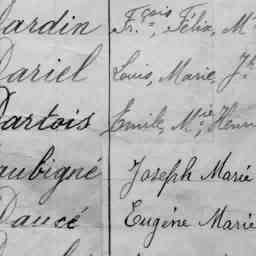 Jardin Fr.çois, Félix, M
Dariel Louis, Marie, J
Dartois Emile, M.ie, Henri
aubigné Joseph Marie
Daucé Eugéne Marie